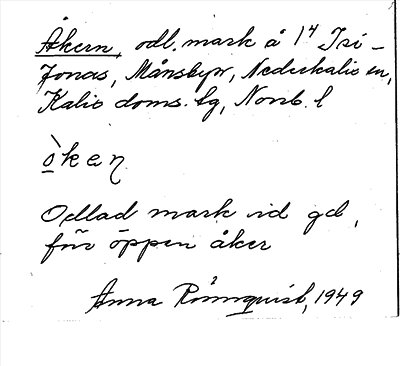 Åkern, odl. mark å 1⁴ Isi-
Jonas, Månsbyn, Nederkalix sn,
Kalix doms. lg, Norrb. l
òken
Odlad mark vid gd,
för öppen åker
Anna Rönnquist, 1949